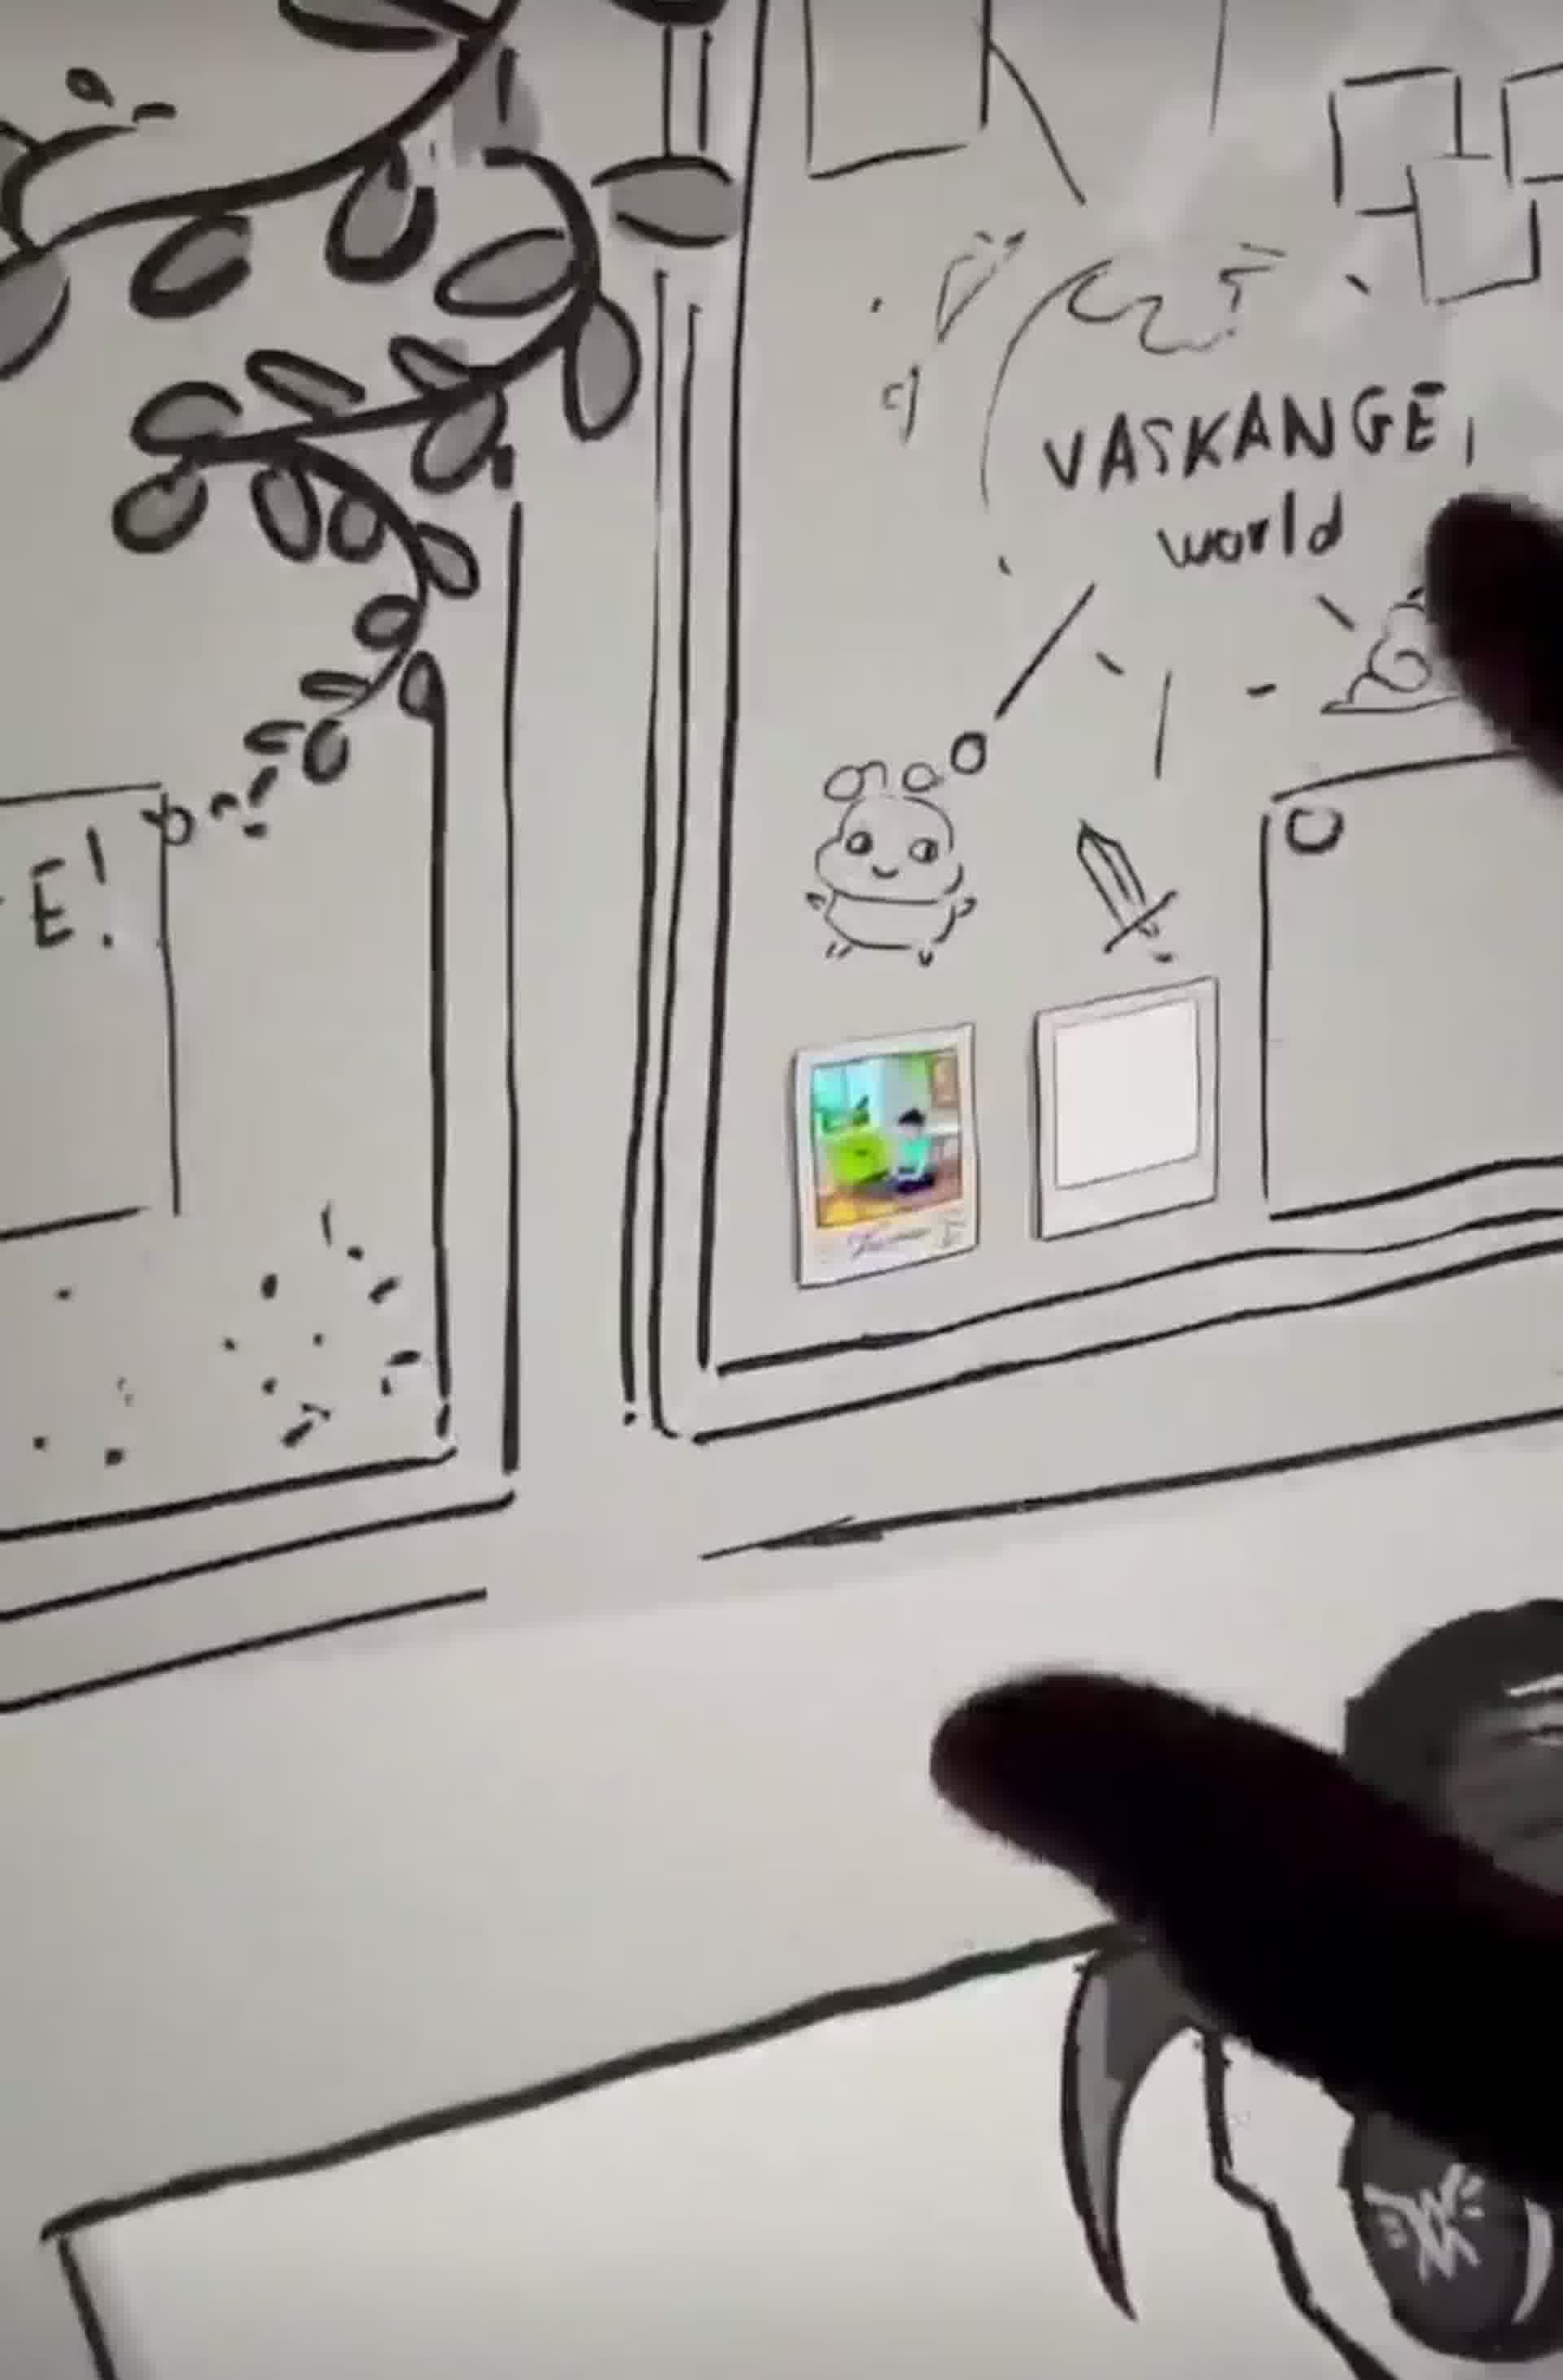 VASKANGE,
world
E!